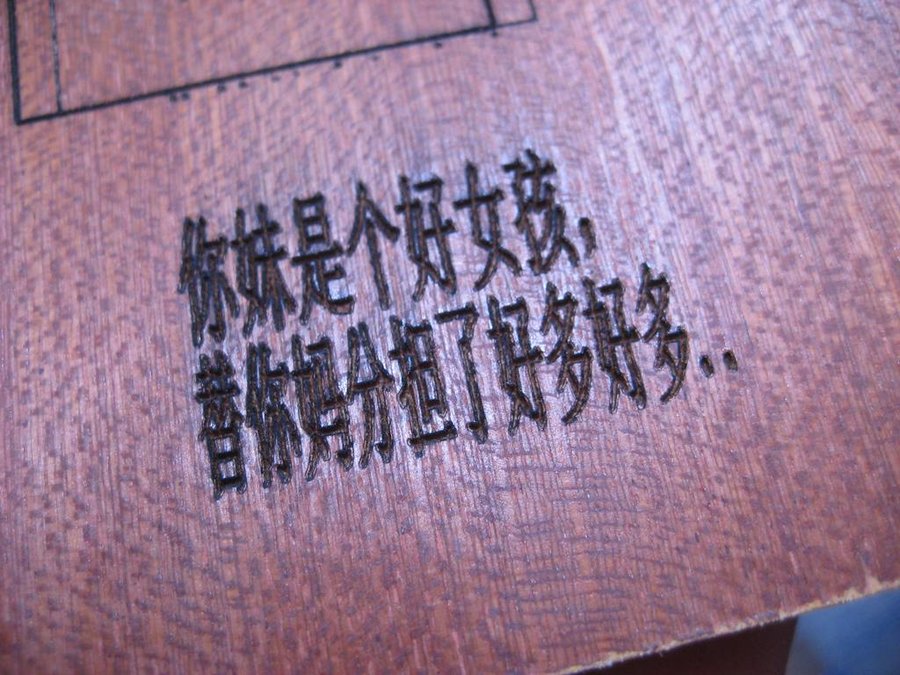 你妹是个好女孩,
替你妈分担了好多好多..